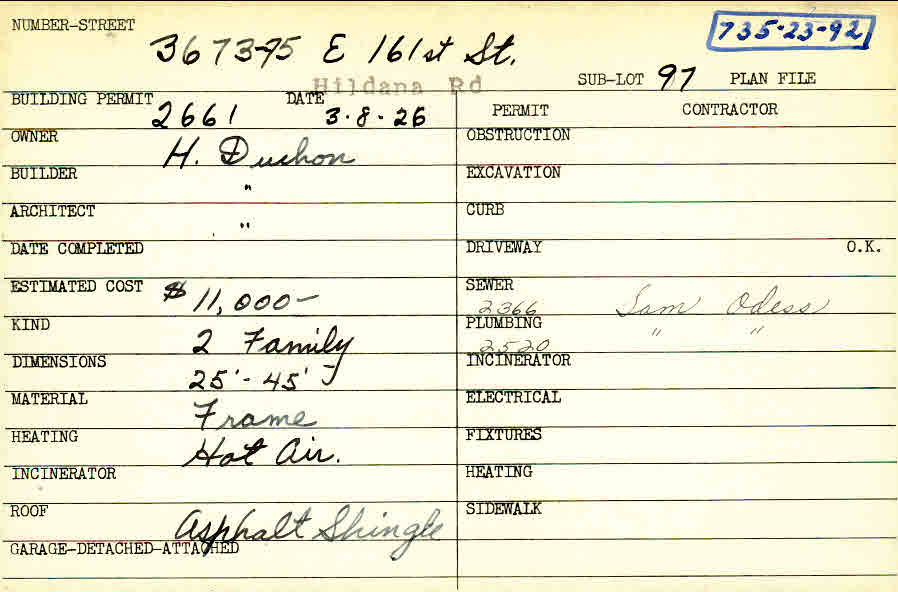 NUMBER-STREET 3673-75 E 161st St. 735-23-92
Hildana Rd SUB-LOT 97 PLAN FILE
BUILDING PERMIT 2661 DATE 3-8-26 PERMIT CONTRACTOR
OWNER H. Duchon OBSTRUCTION
BUILDER " EXCAVATION
ARCHITECT " CURB
DATE COMPLETED DRIVEWAY O.K.
ESTIMATED COST $11,000- SEWER 2366 Sam Odess
KIND 2 Family PLUMBING 2520 " "
DIMENSIONS 25'-45' INCINERATOR
MATERIAL Frame ELECTRICAL
HEATING Hot Air. FIXTURES
INCINERATOR HEATING
ROOF Asphalt Shingle SIDEWALK
GARAGE-DETACHED-ATTACHED